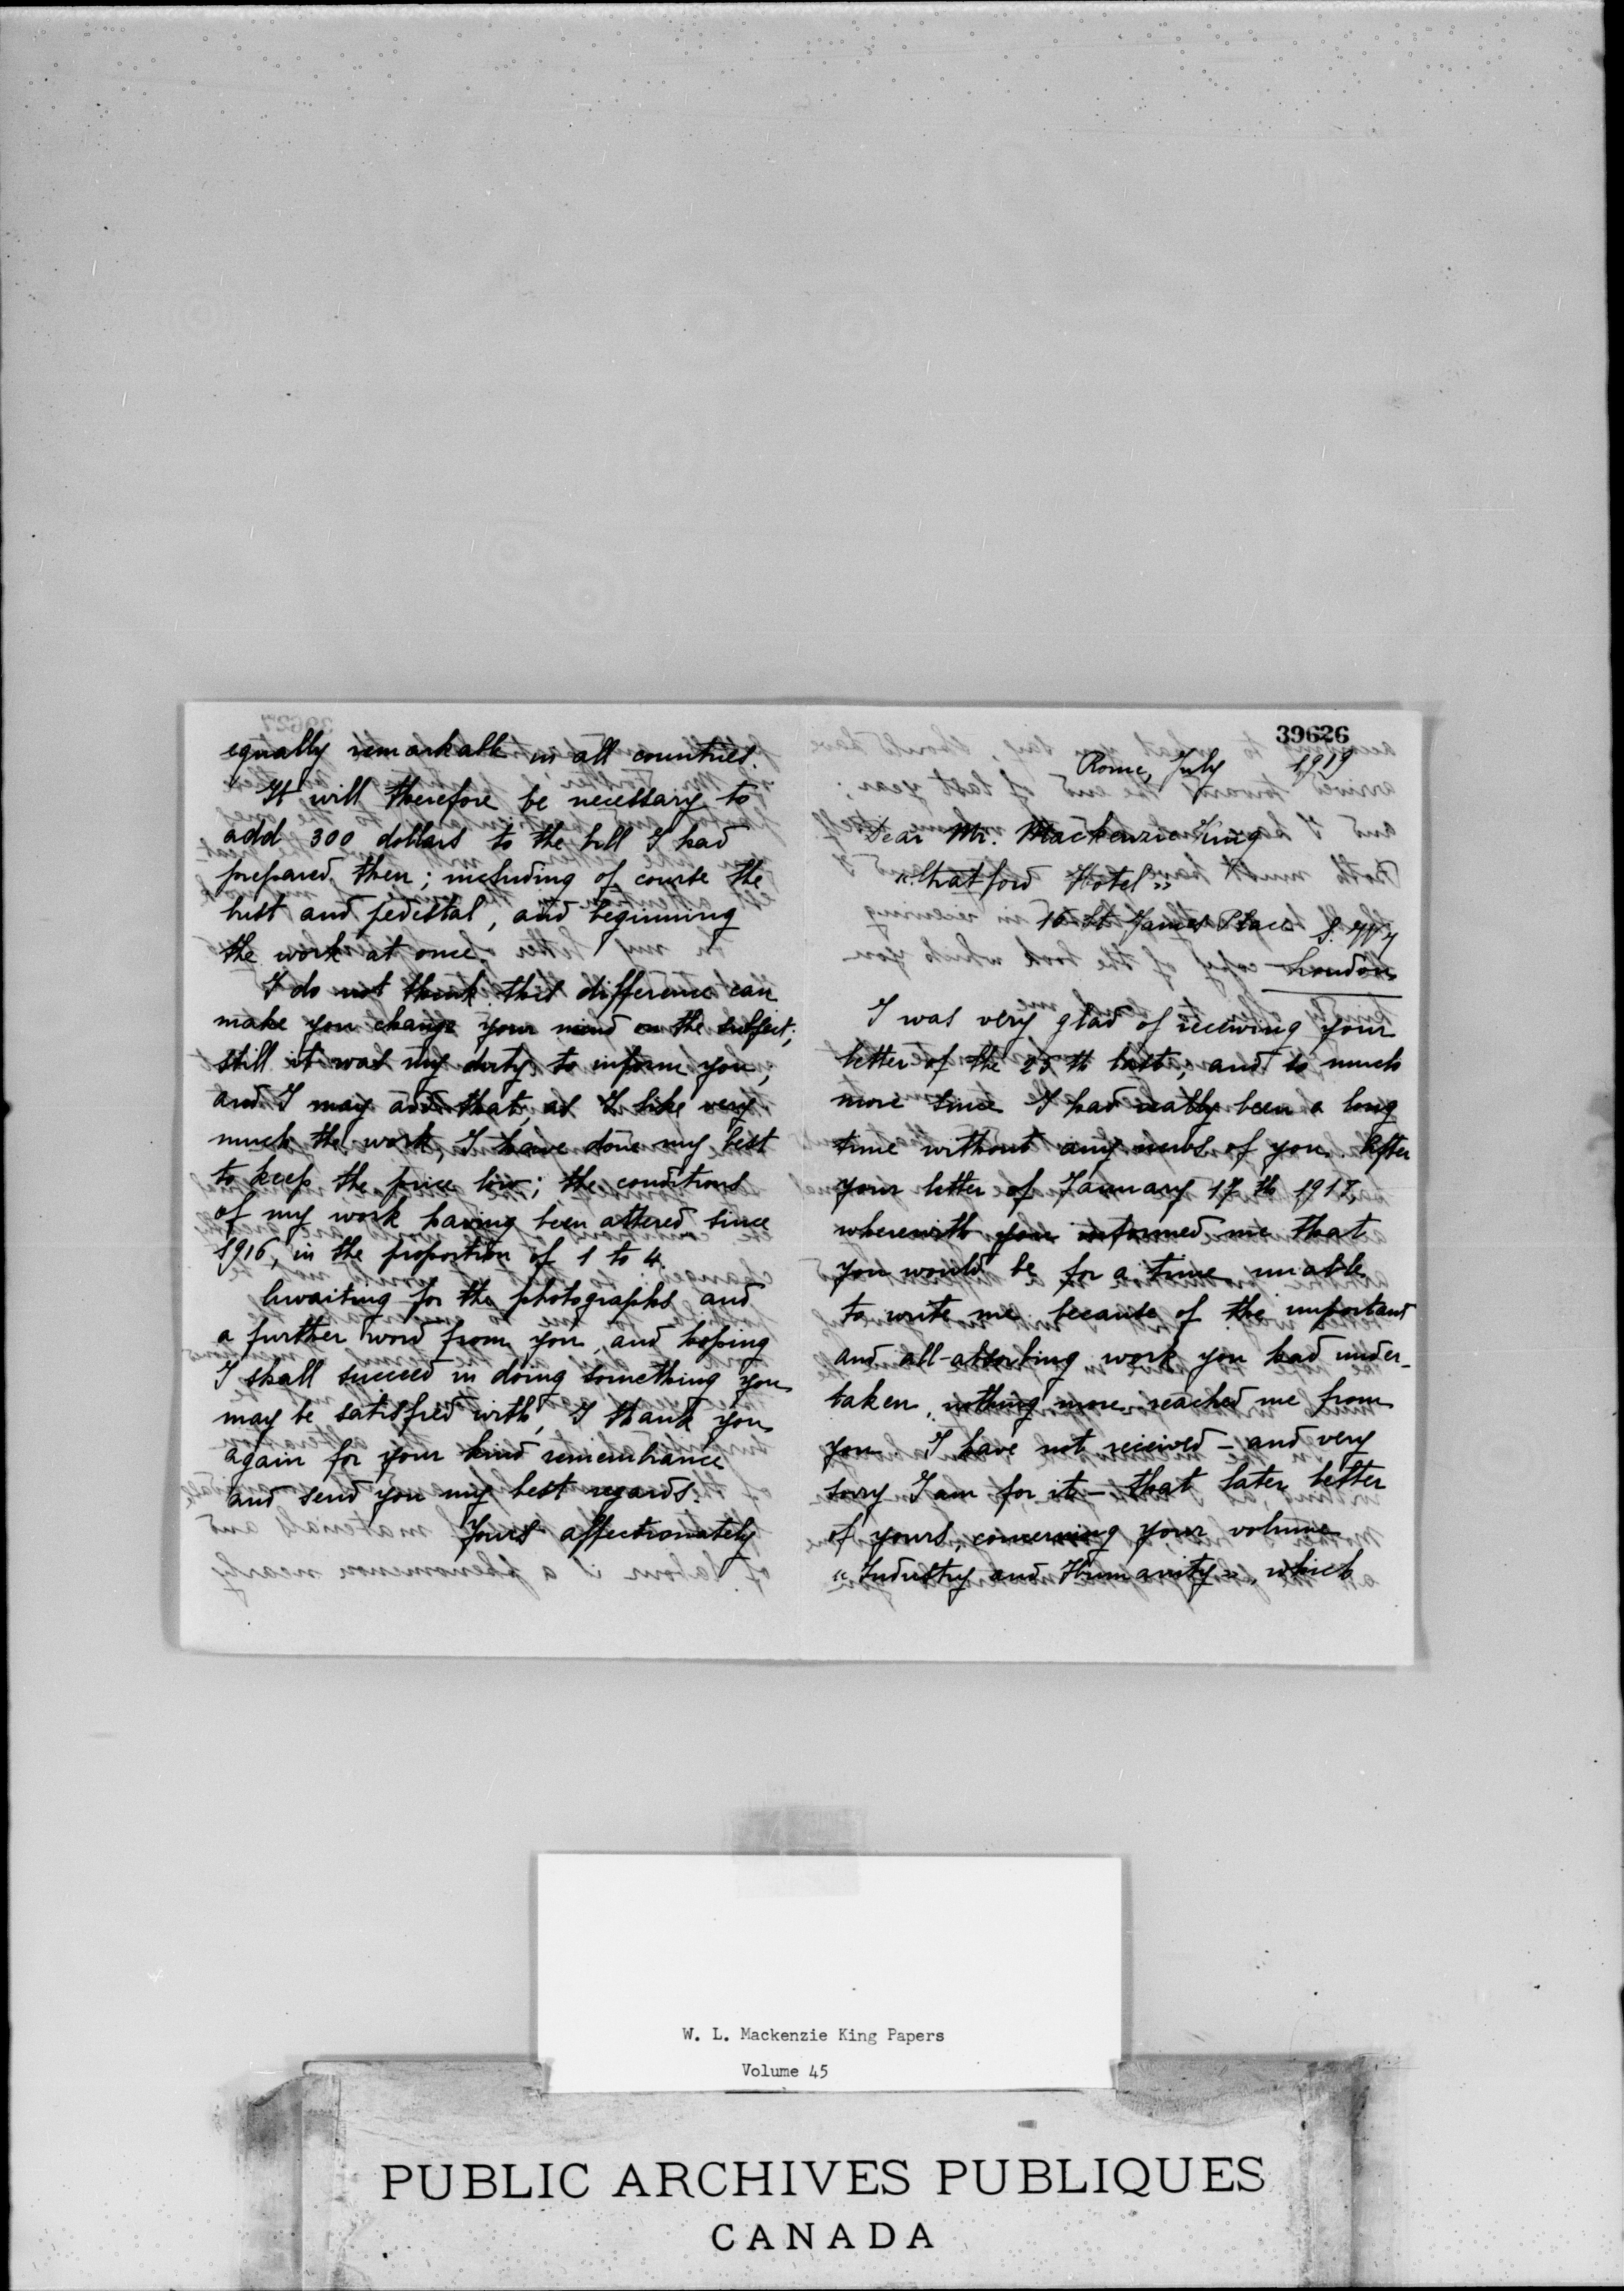 39626
equally remarkable in all countries.
It will therefore be necessary to
add 300 dollars to the bill I had
prepared then; including of course the
bust and pedestal, and beginning
the work at once.
I do not think this difference can
make you change your mind on the subject;
still it was my duty to inform you,
and I may add that, as I like very
much the work, I have done my best
to keep the price low; the conditions
of my work having been altered since
1916, in the proportion of 1 to 4.
Awaiting for the photographs and
a further word from you, and hoping
I shall succeed in doing something you
may be satisfied with, I thank you
again for your kind remembrance
and send you my best regards.
Yours affectionately
Rome, July 1919
Dear Mr. Mackenzie King
"Stratford Hotel"
16 St James Place S. W.
London
I was very glad of receiving your
letter of the 25 th last; and so much
more since I had really been a long
time without any news of you. After
your letter of January 17 th 1917,
wherewith you informed me that
you would be for a time unable
to write me because of the important
and all-absorbing work you had under-
taken, nothing more reached me from
you. I have not received - and very
sorry I am for it - that later letter
of yours, concerning your volume
"Industry and Humanity", which
W. L. Mackenzie King Papers
Volume 45
PUBLIC ARCHIVES PUBLIQUES
CANADA